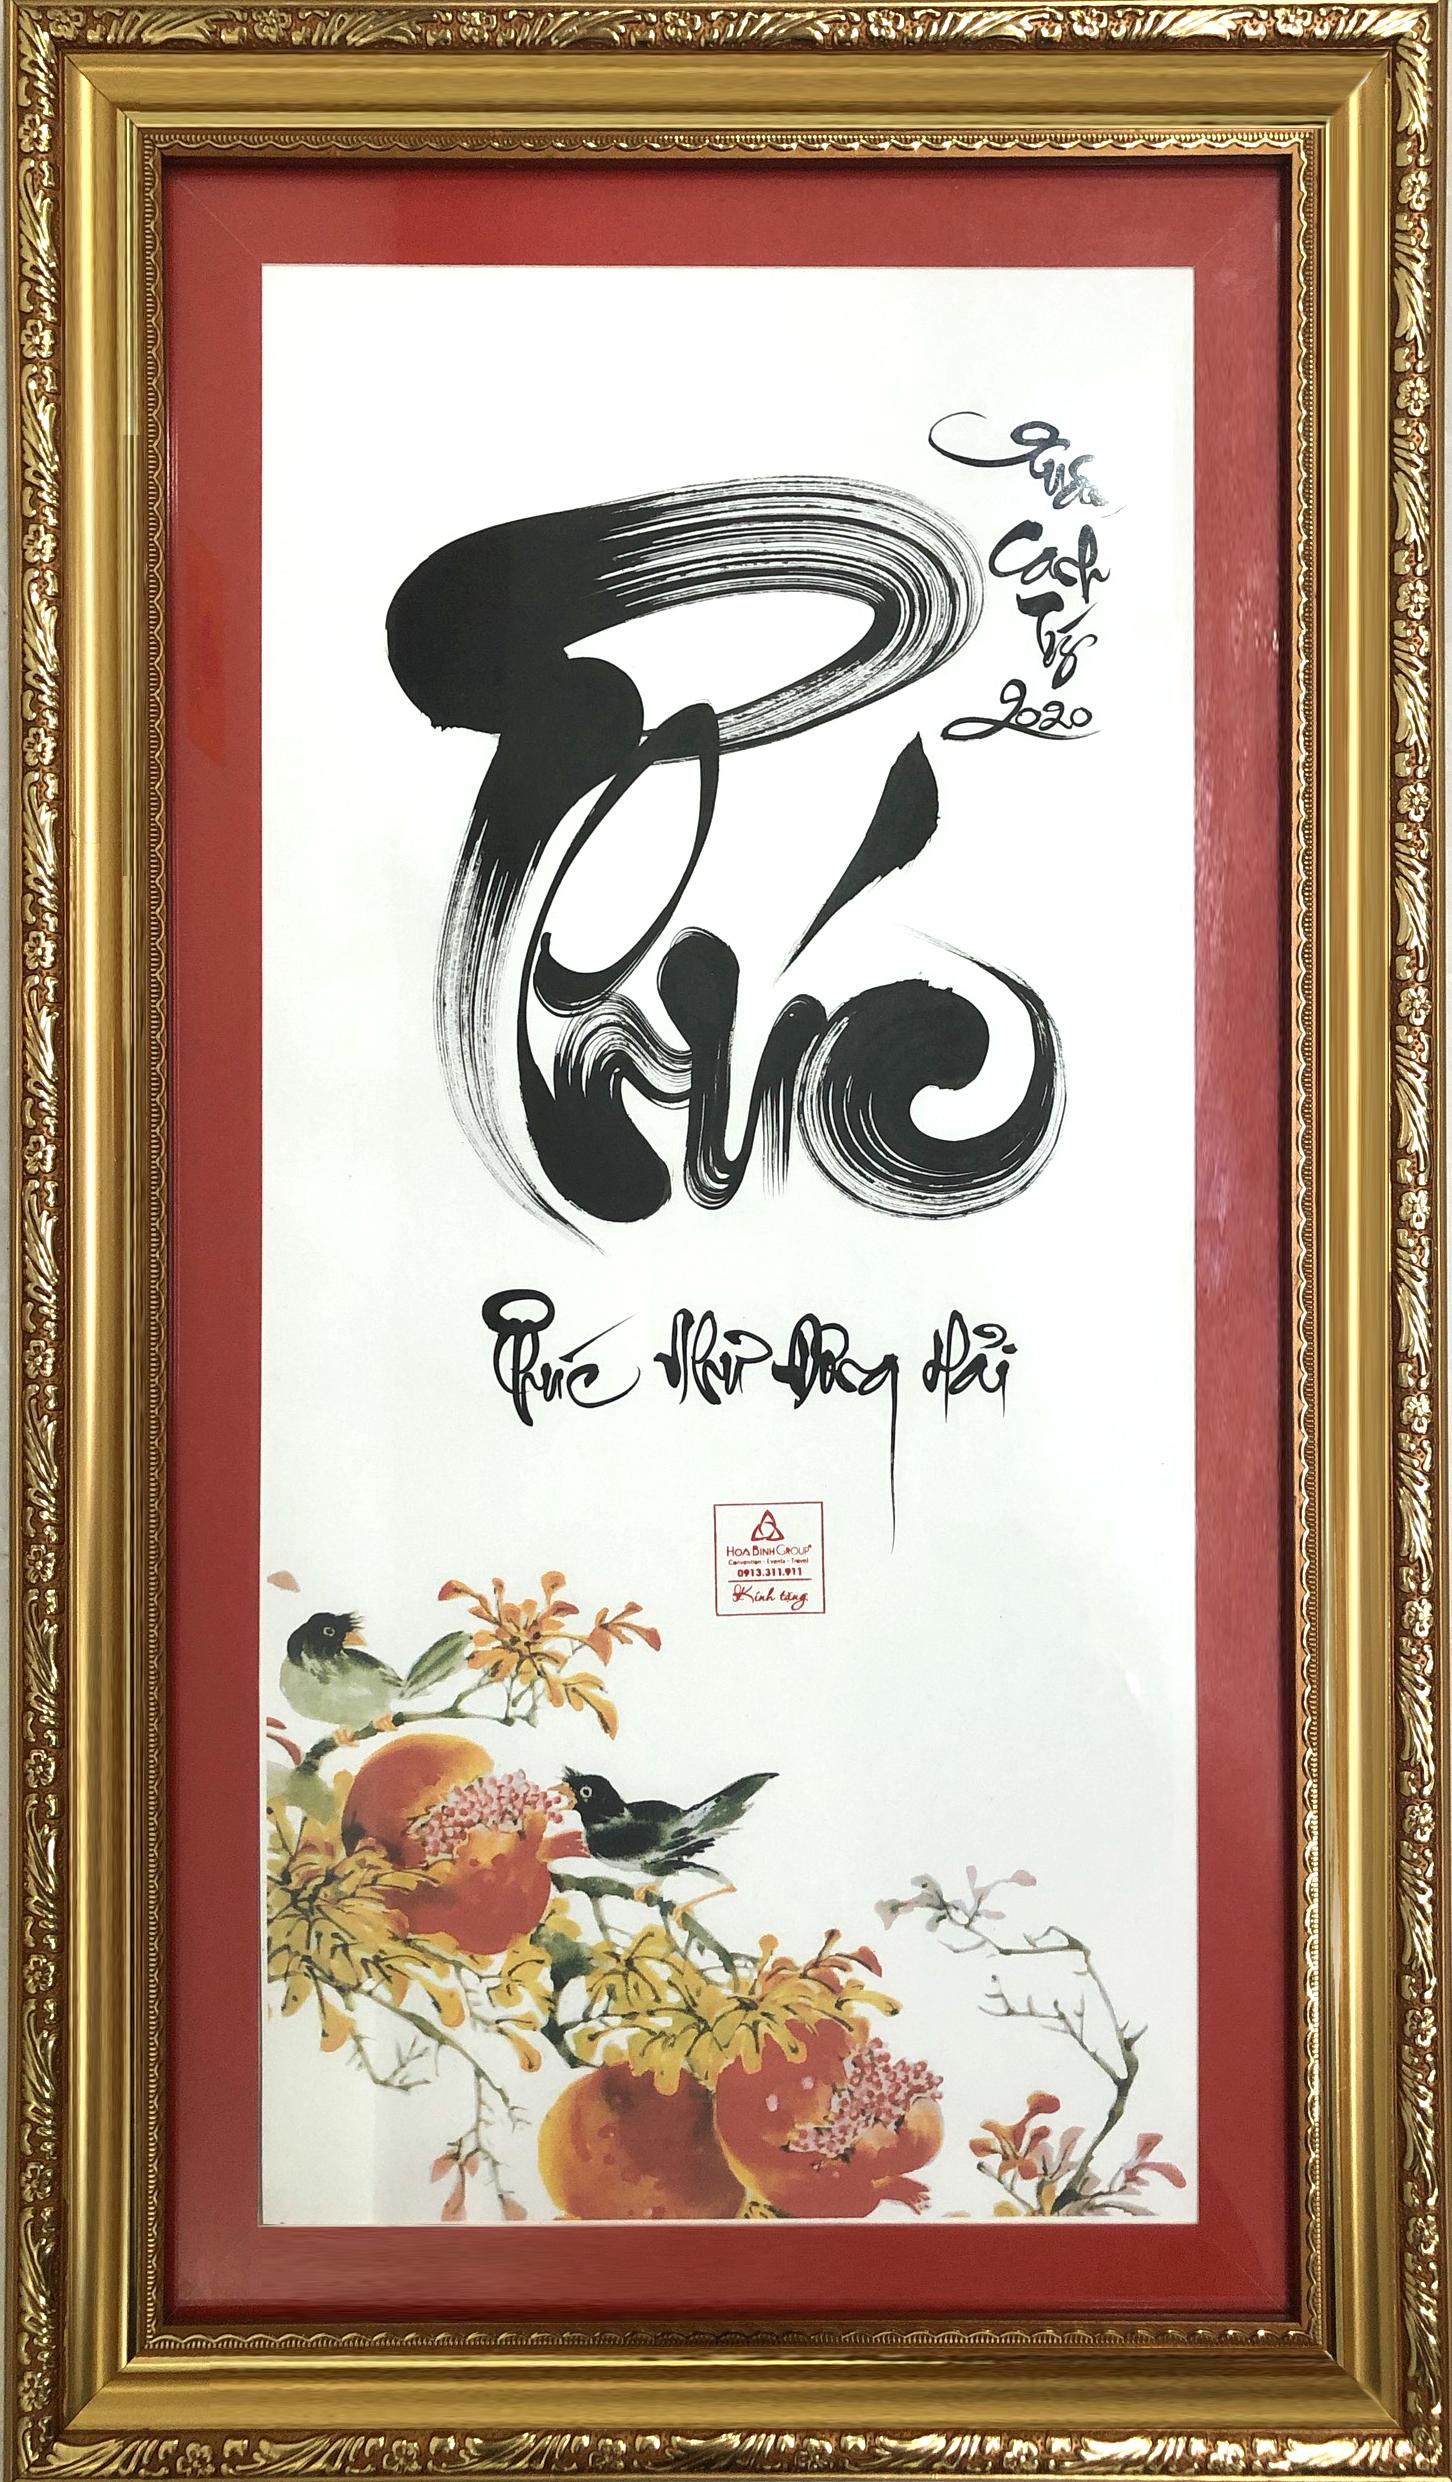 Xuân
Canh
Tý
2020
Phúc
Phúc Như Đông Hải
HOABINHGROUP®
Convention - Events - Travel
0913.311.911
Kính tặng